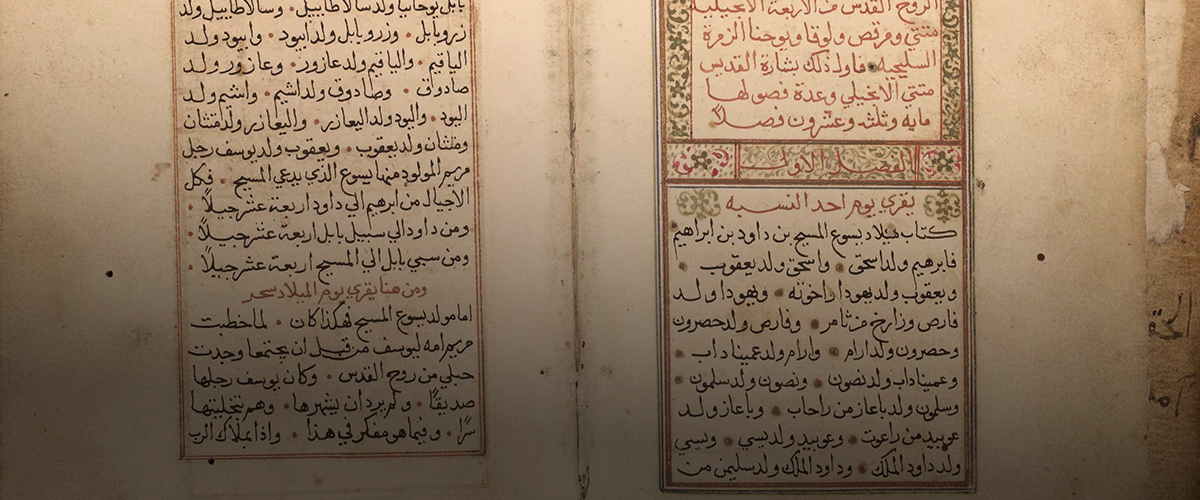 الروح القدس من الاربعة الانجيلية
متي ومرقص ولوقا ويوحنا الزمرة
السليحيه فاول ذلك بشارة القديس
متي الانجيلي وعدة فصولها
مايه وثلثه وعشرون فصلاً
الفصل الاول
يقري يوم احد النسبه
كتاب ميلاد يسوع المسيح بن داود بن ابراهيم
فابرهيم ولد اسحق • واسحق ولد يعقوب •
ويعقوب ولد يهودا واخوته • ويهودا ولد
فارص وزارخ من ثامر • وفارص ولد حصرون
وحصرون ولد ارام • وارام ولد عميناداب •
وعميناداب ولد نصون • ونصون ولد سلمون •
وسلمون ولد باعاز من راحاب • وباعاز ولد
عوبيد من راعوت • وعوبيد ولد يسي • ويسي
ولد داود الملك • وداود الملك ولد سليمن من
بابل يوحانيا ولد سالاطاييل • وسالاطاييل ولد
زروبابل • وزروبابل ولد ابيود • وابيود ولد
الياقيم • والياقيم ولد عازور • وعازور ولد
صادوق • وصادوق ولد اشيم • واشيم ولد
اليود • واليود ولد اليعازر • واليعازر ولد متثان
ومتثان ولد يعقوب • ويعقوب ولد يوسف رجل
مريم المولود منها يسوع الذي يدعي المسيح • فكل
الاجيال من ابرهيم الي داود اربعة عشر جيلاً •
ومن داود الي سبي بابل اربعة عشر جيلاً •
ومن سبي بابل الي المسيح اربعة عشر جيلاً •
ومن هنا يقري يوم الميلاد سحر
اما مولد يسوع المسيح فهكذا كان • لما خطبت
مريم امه ليوسف من قبل ان يجتمعا وجدت
حبلي من روح القدس • وكان يوسف رجلها
صديقًا • ولم يرد ان يشهرها • وهم بتخليتها
سرًا • وفيما هو مفكر في هذا • واذا بملاك الرب